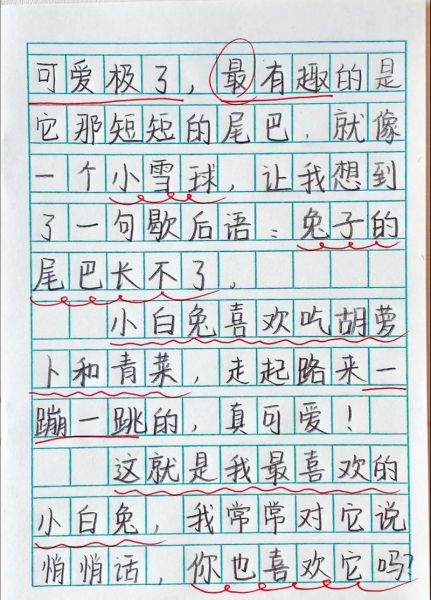 可爱极了，最有趣的是
它那短短的尾巴，就像
一个小雪球，让我想到
了一句歇后语：兔子的
尾巴长不了。
小白兔喜欢吃胡萝
卜和青菜，走起路来一
蹦一跳的，真可爱！
这就是我最喜欢的
小白兔，我常常对它说
悄悄话，你也喜欢它吗？